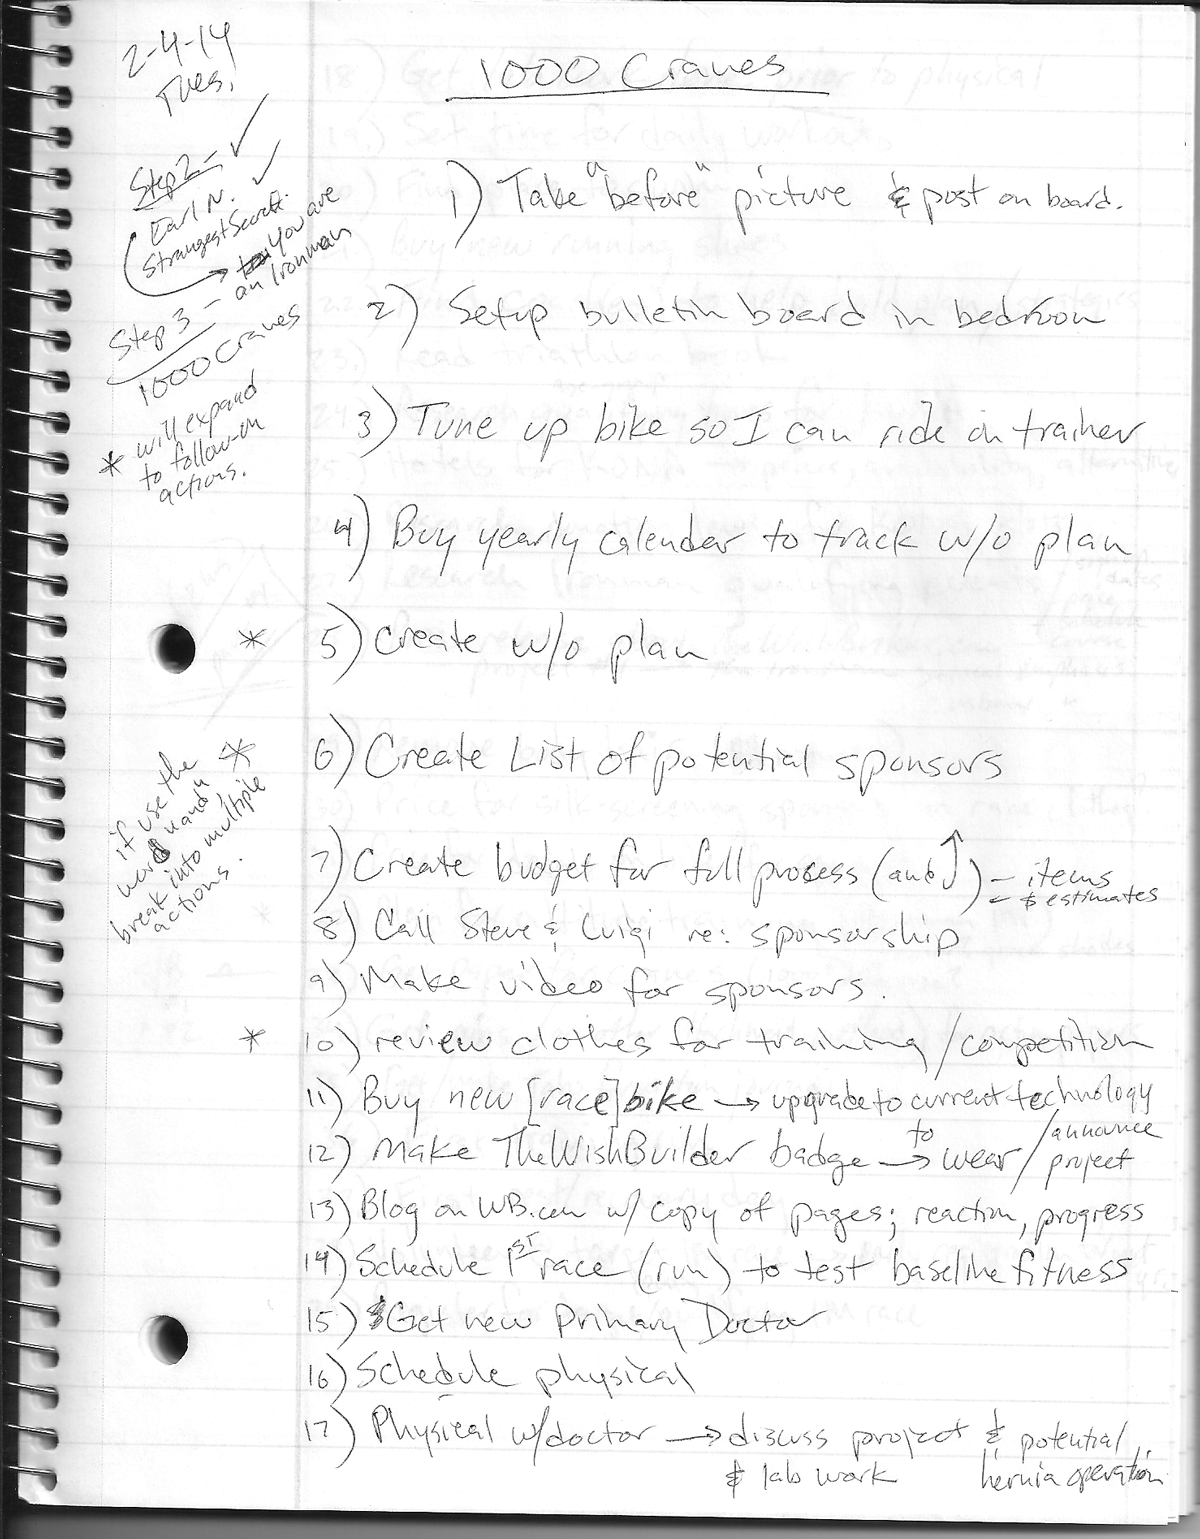 2-4-14
Tues.
1000 Cranes
Step 2 - ✓
Earl N. ✓
Strangest Secret.
→ You are
an Ironman
Step 3 -
1000 Cranes
* will expand
to follow-on
actions.
1) Take a "before" picture & post on board.
2) Setup bulletin board in bedroom
3) Tune up bike so I can ride on trainer
4) Buy yearly calendar to track w/o plan
* 5) Create w/o plan
* 6) Create List of potential sponsors
if use the
word "and"
break into multiple
actions.
7) Create budget for full process (and ↑) - items
- & estimates
8) Call Steve & Luigi re: sponsorship
9) Make video for sponsors.
* 10) review clothes for training/competition
11) Buy new [race] bike → upgrade to current technology
12) Make TheWishBuilder badge → to wear/announce
project
13) Blog on WB.com w/ copy of pages; reaction, progress
14) Schedule 1st race (run) to test baseline fitness
15) Get new Primary Doctor
16) Schedule physical
17) Physical w/doctor → discuss project & potential
& lab work hernia operation